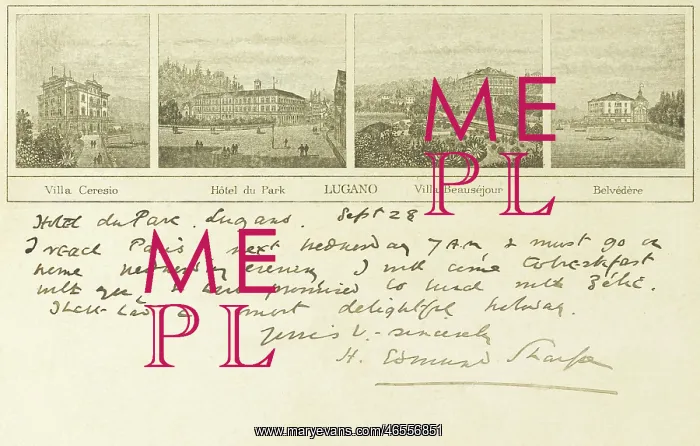 Villa Ceresio Hôtel du Park LUGANO Villa Beauséjour Belvédère
Hotel du Parc. Lugano. Sept 28
I reach Paris next Wednesday 7 AM & must go on
home Wednesday evening I will come to breakfast
with you promised to lunch with Zélie.
I have had a most delightful holiday.
Yours v. sincerely
H. Edmund Sharpe
ME
PL
ME
PL
www.maryevans.com/46556851